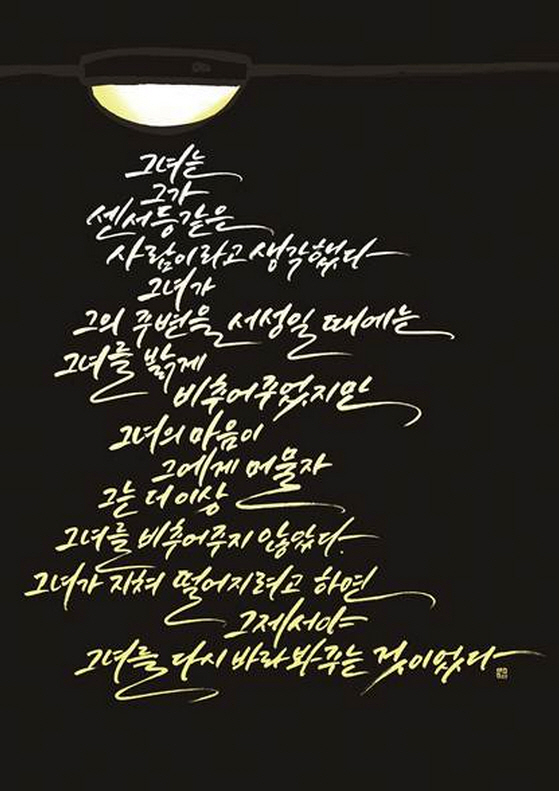 그녀는
그가
센서등같은
사람이라고 생각했다
그녀가
그의 주변을 서성일 때에는
그녀를 밝게
비추어주었지만
그녀의 마음이
그에게 머물자
그는 더이상
그녀를 비추어주지 않았다.
그녀가 지쳐 떨어지려고 하면
그제서야
그녀를 다시 바라봐주는 것이었다